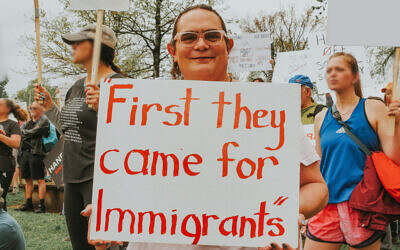 First they
came for
Immigrants"